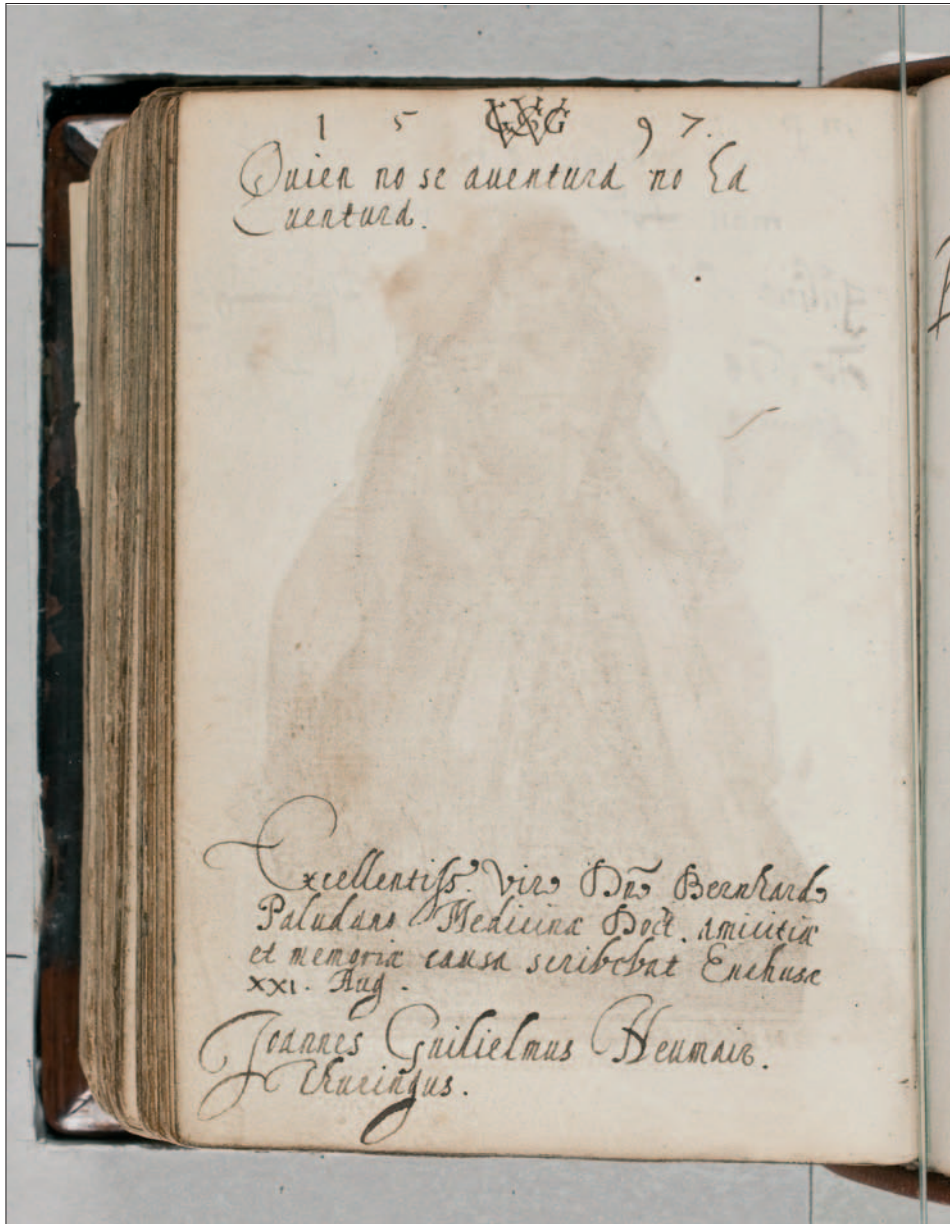 1 5 97.
Quien no se auentura no ha
uentura.
Excellentiss. Viro Dño Bernhardo
Paludano Medicinæ Doct. amicitiæ
et memoriæ causa scribebat Enchusæ
XXI. Aug.
Joannes Guilielmus Heumair.
Thuringus.